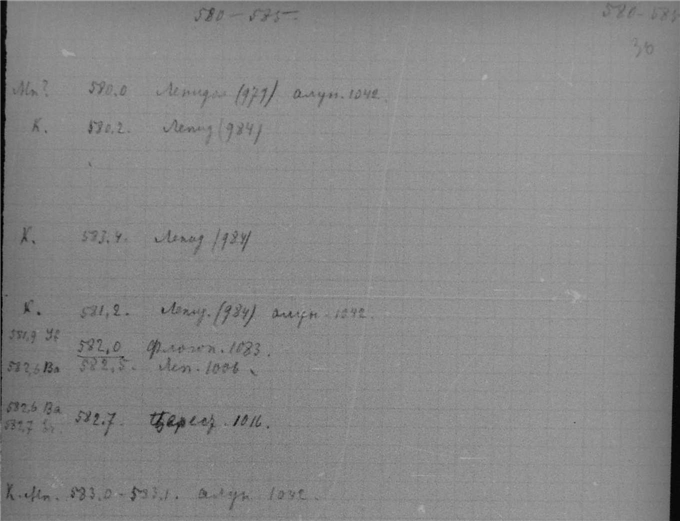 580-585. 580-585
36
Мn? 580.0 Лепидол (979) алун. 1042.
К. 580.2. Лепид (984)
К. 583.4. Лепид (984)
К. 581,2. Лепид. (984) алун. 1042.
582,0 Флогоп. 1083.
582,6 Ba 582,5. Леп. 1006
582,6 Ba
582.7. 1016.
К.Мn. 583.0-583.1. алун 1042.